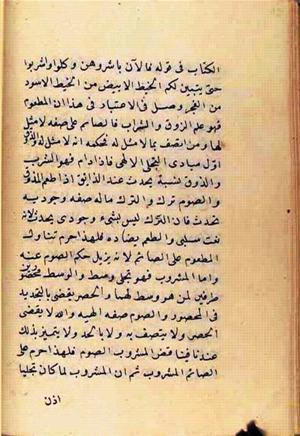 الكتاب في قوله فالآن باشروهن وكلوا واشربوا
حتى يتبين لكم الخيط الابيض من الخيط الاسود
من الفجر وصل في الاعتبار في هذا ان المطعوم
فهو علم الذوق والشراب فالصائم على صفة لا مثل
لها ومن اتصف بما لا مثل له فحكمه انه لا مثل له والذوق
اول مبادي التجلي الالهي فاذا دام فهو الشرب
والذوق نسبة يحدث عند الذائق اذا طعم المذوق
والصوم ترك والترك ماله صفة وجودية
تحدث فان الترك ليس بشيء وجودي يحدث لانه
نعت سلبي والطعم يضاده فلهذا حرم تناول
المطعوم على الصائم لانه يزيل حكم الصوم عنه
واما المشروب فهو تجلي وسط والوسط محصور
طرفين لمن هو وسط لهما والحصر يقضي بالتحديد
في المحصور والصوم صفة الهية والله لا يقضي
الحصر ولا يتصف به ولا بالحد ولا يتميز بذلك
عندنا فيناقض المشروب الصوم فلهذا حرم على
الصائم المشروب ثم ان المشروب لما كان تجليا
اذن